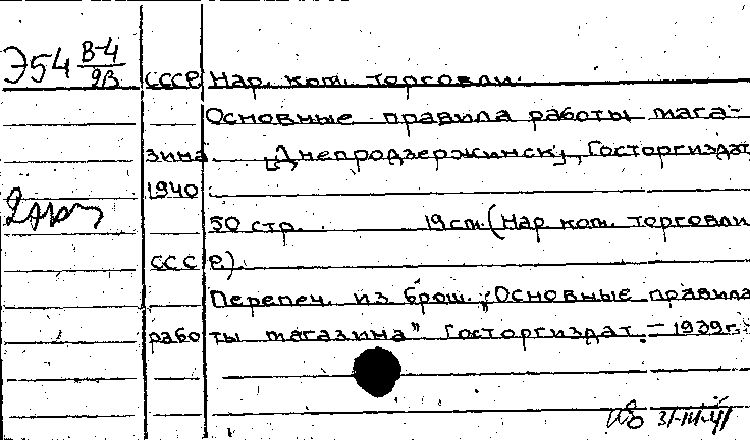 Э54 В-4/9В
СССР Нар. ком. торговли.
Основные правила работы мага-
зина. [Днепродзержинск], Госторгиздат
1940.
50 стр. 19 см. (Нар ком. торговли
СССР).
Перепеч. из брош. „Основные правила
работы магазина" Госторгиздат. – 1939 г.
31-III-41